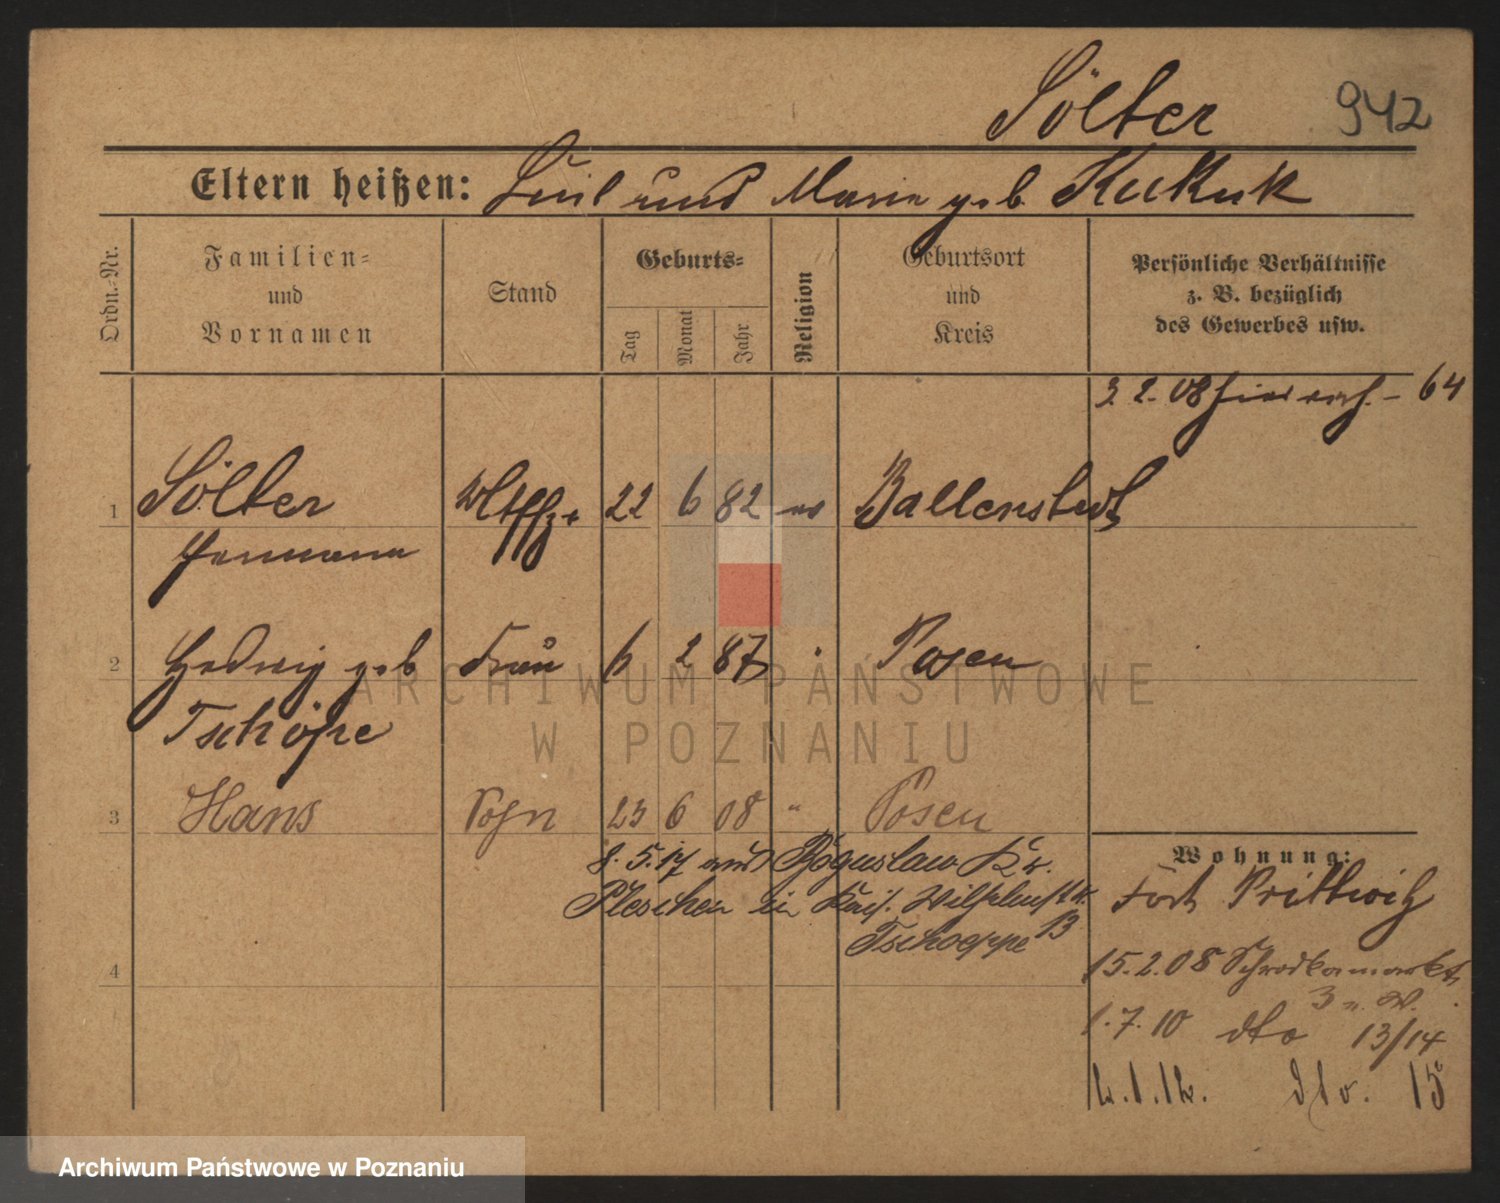 Sölter 942
Eltern heißen: Emil und Marie geb Kukuk
Ordn.-Nr.
Familien-
und
Vornamen
Stand
Geburts-
Tag
Monat
Jahr
Religion
Geburtsort
und
Kreis
Persönliche Verhältnisse
z. B. bezüglich
des Gewerbes usw.
3. 2. 08 64
1 Sölter 22 6 82 ev Ballenstedt
Hermann
2 Hedwig geb Frau 6 2 87 " Posen
Tschöpe
3 Hans Sohn 23 6 08 " Posen
8. 5. 17 aus Boguslaw Kr.
Pleschen in Kais. Wilhelmstr.
Tschoeppe
4
Wohnung:
Fort Prittwitz
15. 2. 08 Schrodkamarkt
3 n. W.
1. 7. 10 dto 13/14
2. 1. 12. dto. 15
ARCHIWUM PAŃSTWOWE
W POZNANIU
Archiwum Państwowe w Poznaniu